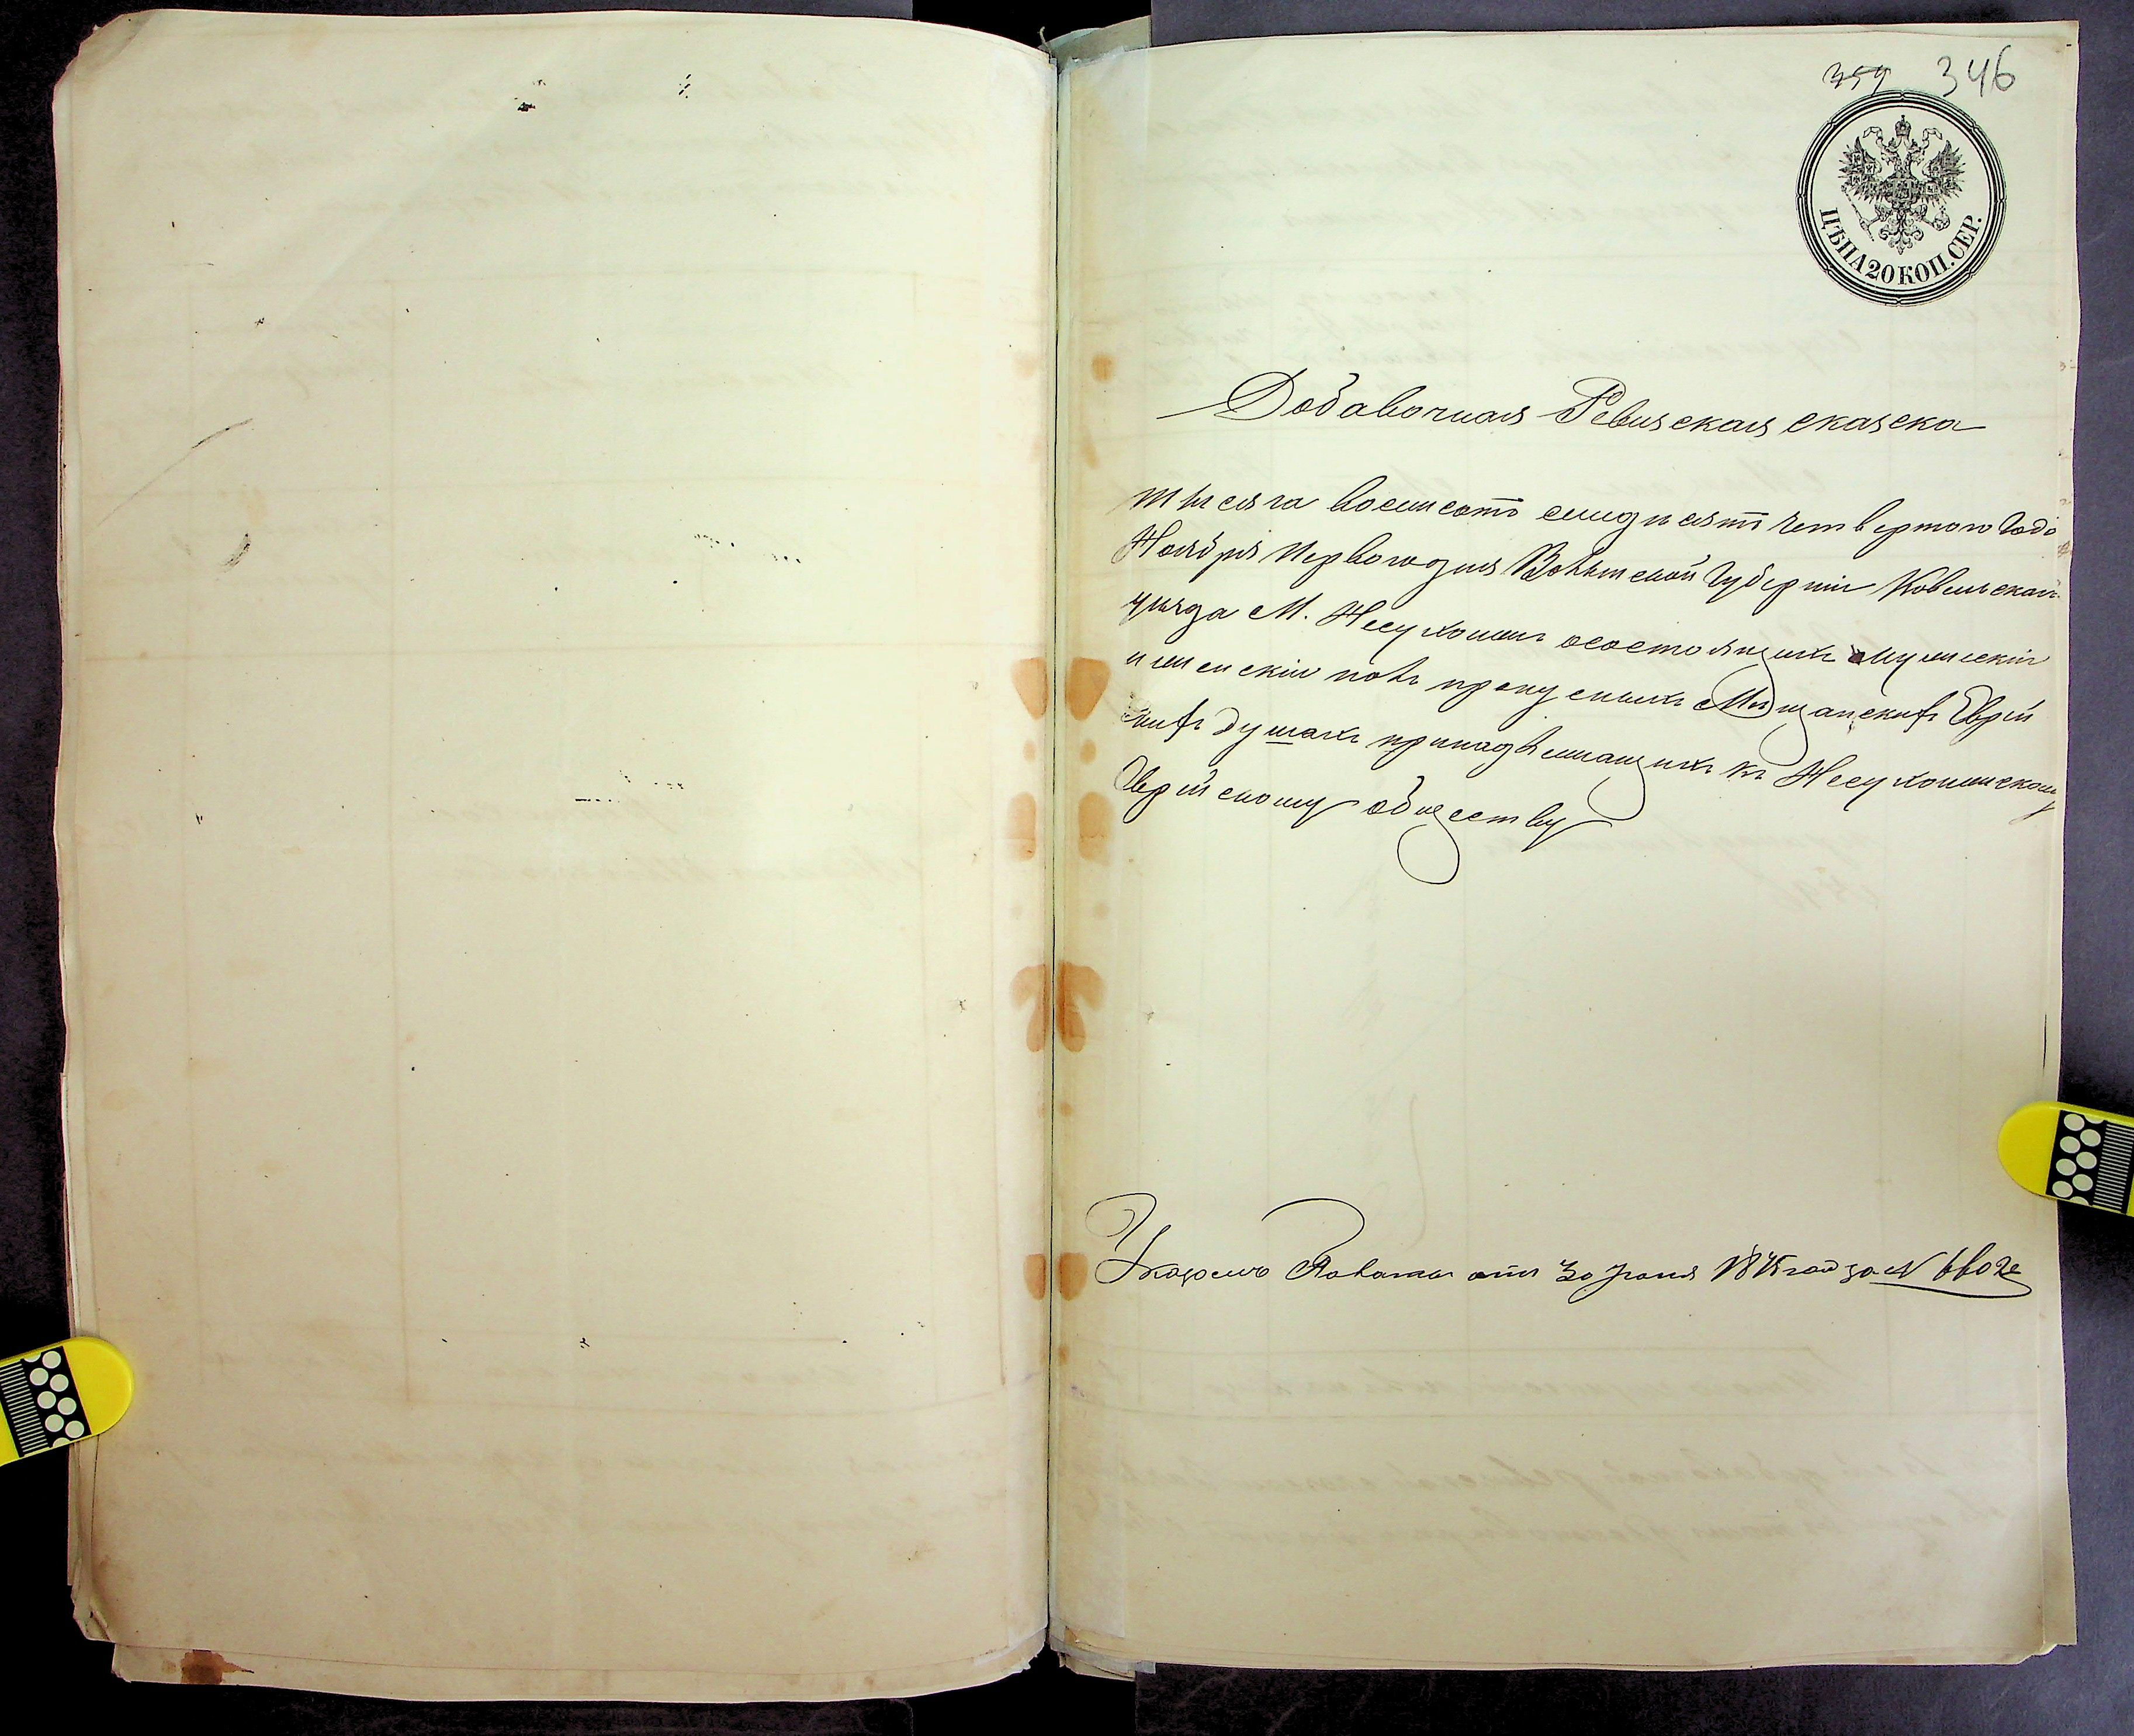 359 346
ЦѢНА 20 КОП. СЕР.
Добавочная Ревизская сказска
тысяча восемсотъ семдисят четвертого Года
Ноября Первого дня Волынской Губерніи Ковельскаго
уѣзда М. Несухоиже о состоящихъ Мужескій
и женскій полъ пропусныхъ Мѣщанскихъ Еврей
скихъ душахъ принадлежащихъ къ Несухоижскому
Еврейскому обществу
Указомъ Палаты отъ 30 Іюня 1875 года за N